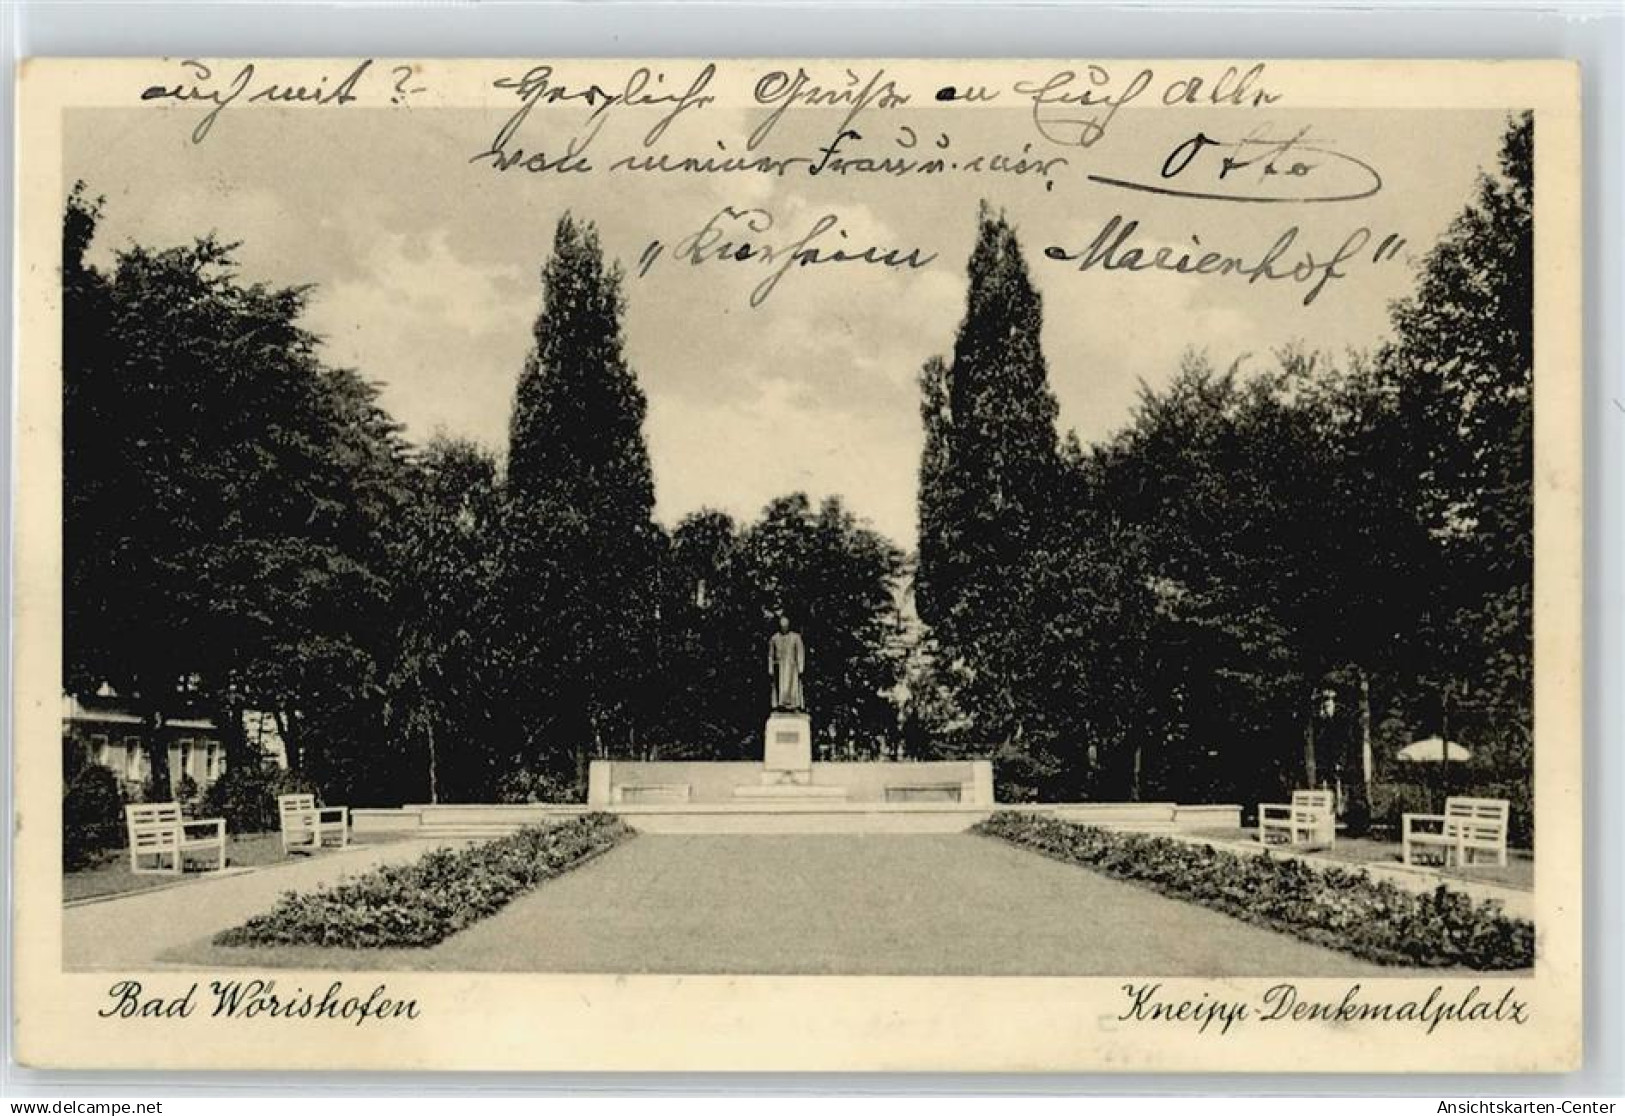 auch mit ?- Herzliche Grüße an Euch alle
von meiner Frau u. mir, Otto
"Kurheim Marienhof"
Bad Wörishofen Kneipp-Denkmalplatz
www.delcampe.net bienchen83 Ansichtskarten-Center